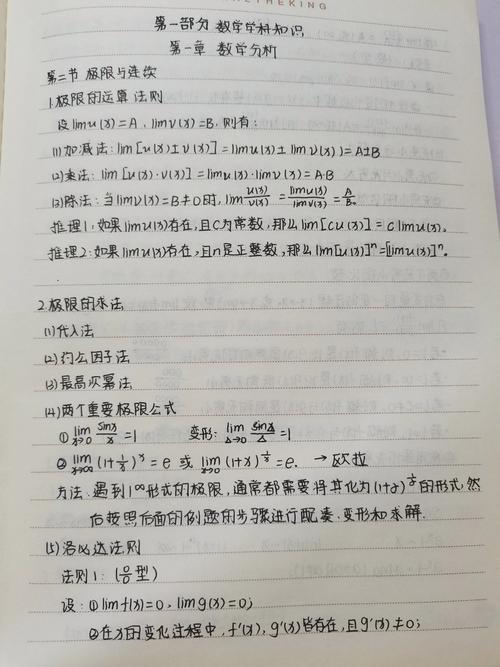 THEKING
第一部分 数学学科知识
第一章 数学分析
第二节 极限与连续
1.极限的运算法则
设limu(x)=A, limv(x)=B, 则有:
(1)加减法: lim[u(x)±v(x)]=limu(x)±limv(x)=A±B
(2)乘法: lim[u(x)·v(x)]=limu(x)·limv(x)=A·B
(3)除法: 当limv(x)=B≠0时, lim u(x)/v(x) = limu(x)/limv(x) = A/B.
推理1: 如果limu(x)存在, 且C为常数, 那么lim[cu(x)]=climu(x).
推理2: 如果limu(x)存在, 且n是正整数, 那么lim[u(x)]ⁿ=[limu(x)]ⁿ.
2.极限的求法
(1)代入法
(2)约公因子法
(3)最高次幂法
(4)两个重要极限公式
① lim x→0 sinx/x =1 变形: lim Δ→0 sinΔ/Δ =1
② lim x→∞ (1+1/x)ˣ = e 或 lim x→0 (1+x)^(1/x) = e. → 欧拉
方法: 遇到1^∞形式的极限, 通常都需要将其化为(1+α)^(1/α)的形式, 然
后按照后面的例题的步骤进行配凑、变形和求解.
(5)洛必达法则
法则1: (0/0型)
设: ①limf(x)=0, limg(x)=0;
②在x的变化过程中, f'(x), g'(x)皆存在, 且g'(x)≠0;